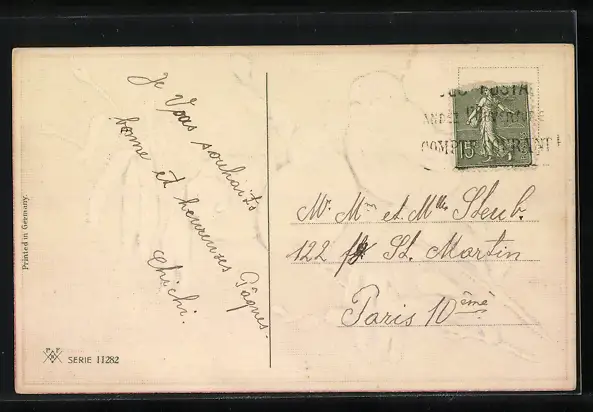 Je Vous souhaits
bonne et heureuses Pâques.
Chichi.
COMPTE COURANT
15
Mr. Mme et Mlle Steub.
122 fg St. Martin
Paris 10ème
Printed in Germany.
SERIE 11282